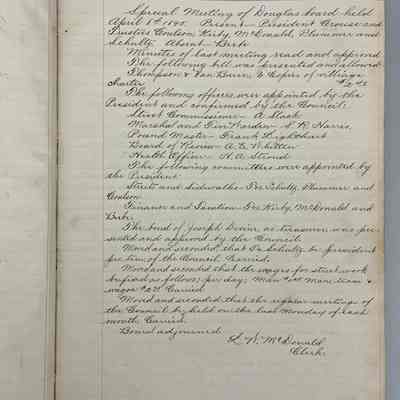 Special Meeting of Douglas board held
April 8th 1895. Present - President Crouse and
Trustees Coulson, Kirby, McDonald, Plummer and
Schultz. Absent - Birbe
Minutes of last meeting read and approved
The following bill was presented and allowed
Thompson & Van Buren 6 Copies of village
Charter
The following officers were appointed by the
President and confirmed by the Council:
Street Commissioner - A. Slack
Marshal and Fire Warden - S. R. Harris
Pound Master - Frank
Board of Review - A. E. Whitten
Health Officer - H. A. Stroud
The following committees were appointed by
the President
Streets and Sidewalks - Trs. Schultz, Plummer and
Coulson
Finance and Taxation - Trs. Kirby, McDonald and
The bond of Joseph Devine as treasurer was pre-
sented and approved by the Council.
Moved and seconded that Tr. Schultz be president
pro tem of the Council. Carried.
Moved and seconded that the wages for street work
be fixed as follows per day; Man Man team &
wagon Carried
Moved and seconded that the regular meetings of
the Council be held on the last Monday of each
month. Carried.
Board adjourned
L. W. McDonald
Clerk